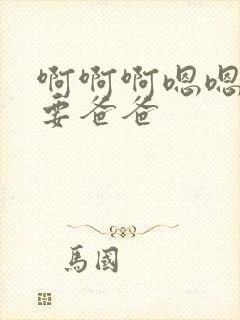 啊啊啊嗯嗯
要爸爸
馬國